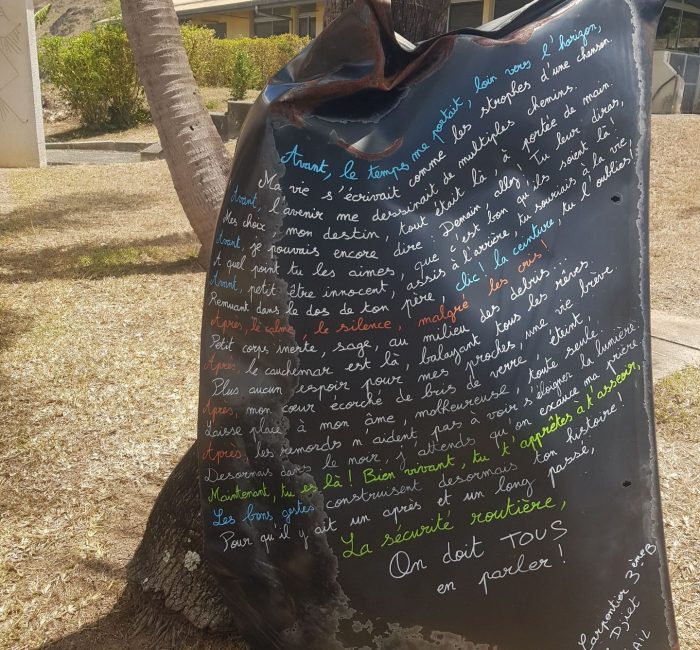 Avant, le temps me portait, loin vers l'horizon,
Ma vie s'écrivait comme les strophes d'une chanson.
Avant, l'avenir me dessinait de multiples chemins.
Mes choix, mon destin, tout était là, à portée de main.
Avant, je pouvais encore dire : Demain, allez, Tu leur diras,
A quel point tu les aimes, que c'est bon qu'ils soient là !
Avant, petit être innocent, assis à l'arrière, tu souriais à la vie
Remuant dans le dos de ton père, clic ! la ceinture, tu l'oublies !
Après, le calme, le silence, malgré les cris !
Petit corps inerte, sage, au milieu des débris...
Après, le cauchemar est là, balayant tous les rêves.
Plus aucun espoir pour mes proches, une vie brève
Après, mon cœur écorché de bris de verre, éteint.
Laisse place à mon âme, malheureuse, toute seule.
Après, les remords n'aident pas à voir s'éloigner la lumière
Desormais dans le noir, j'attends qu'on exauce ma prière
Maintenant, tu es là ! Bien vivant, tu t'apprêtes à t'asseoir,
Les bons gestes construisent desormais ton histoire !
Pour qu'il y ait un après et un long passé,
La sécurité routière,
On doit TOUS
en parler !
Carpentier 3ème B
Djiet